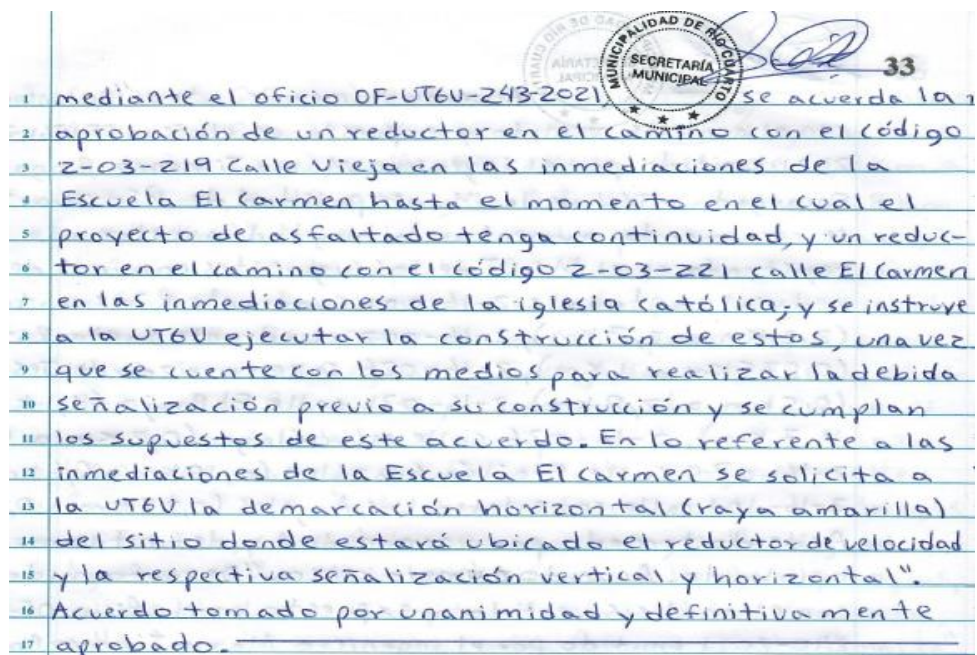 MUNICIPALIDAD DE RÍO CUARTO
SECRETARÍA
MUNICIPAL
33
1 mediante el oficio OF-UTGV-243-2021, se acuerda la
2 aprobación de un reductor en el camino con el código
3 2-03-219 Calle Vieja en las inmediaciones de la
4 Escuela El Carmen hasta el momento en el cual el
5 proyecto de asfaltado tenga continuidad, y un reduc-
6 tor en el camino con el código 2-03-221 calle El Carmen
7 en las inmediaciones de la iglesia católica; y se instruye
8 a la UTGV ejecutar la construcción de estos, una vez
9 que se cuente con los medios para realizar la debida
10 señalización previo a su construcción y se cumplan
11 los supuestos de este acuerdo. En lo referente a las
12 inmediaciones de la Escuela El Carmen se solicita a
13 la UTGV la demarcación horizontal (raya amarilla)
14 del sitio donde estará ubicado el reductor de velocidad
15 y la respectiva señalización vertical y horizontal".
16 Acuerdo tomado por unanimidad y definitivamente
17 aprobado.